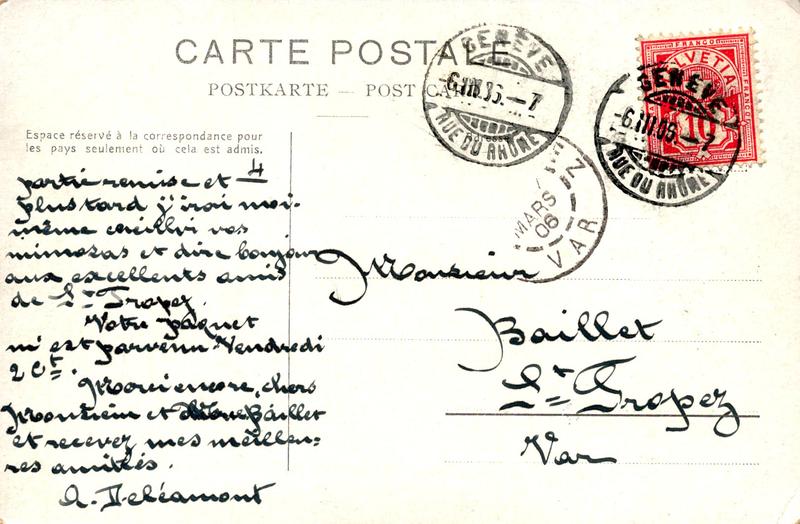 CARTE POSTALE
POSTKARTE — POST CARD
Espace réservé à la correspondance pour
les pays seulement où cela est admis.
Adresse
FRANCO
HELVETIA
10
GENÈVE
-6.III.06.-7
RUE DU RHÔNE
GENÈVE
-6.III.06.-7
RUE DU RHÔNE
MARS
06
VAR
4
partie remise et
plus tard j'irai moi-
même cueillir vos
mimosas et dire bonjour
aux excellents amis
de St Tropez.
Votre paquet
m'est parvenu Vendredi
2 Ct.
Merci encore, chers
Monsieur et Baillet
et recevez mes meilleu=
res amitiés.
Monsieur
Baillet
St Tropez
Var